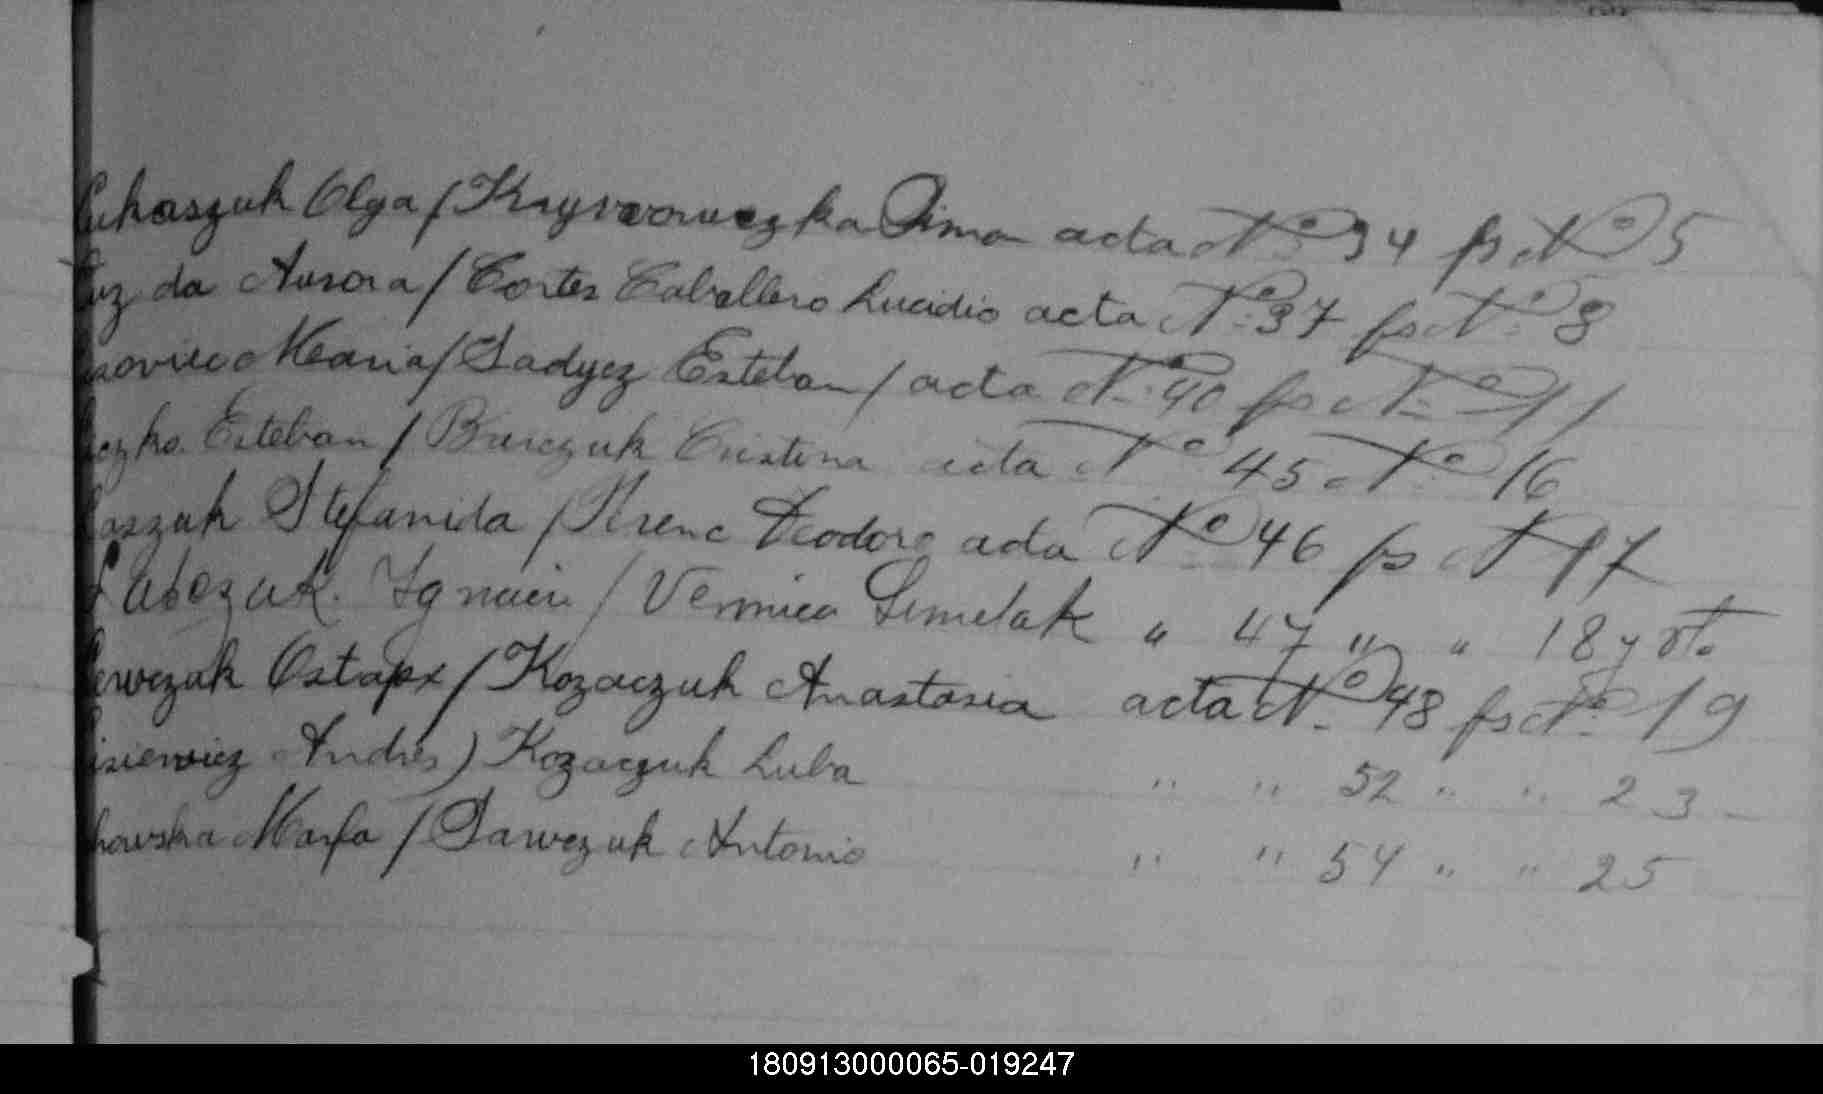 Lukaszuk Olga / Kryworuczka Dima acta Nº 34 fs Nº 5
uz da Aurora / Cortes Caballero Lucidio acta Nº 37 fs Nº 8
Maria / Sadycz Esteban / acta Nº 40 fs Nº 11
czko. Esteban / Burczuk Cristina acta Nº 45 Nº 16
aszuk Stefanida / Hrenc Teodoro acta Nº 46 fs Nº 17
Ignacio / Vernica Semelak " 47 " " 18 y vto.
ewczuk Ostapx / Kozaczuk Anastasia acta Nº 48 fs Nº 19
isiewicz Andrés ) Kozaczuk Luba " " 52 " " 23
howska Marfa / Sawczuk Antonio " " 54 " " 25
180913000065-019247